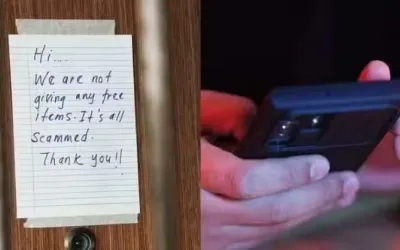 Hi....
We are not
giving any free
items. It's all
scammed.
Thank you!!